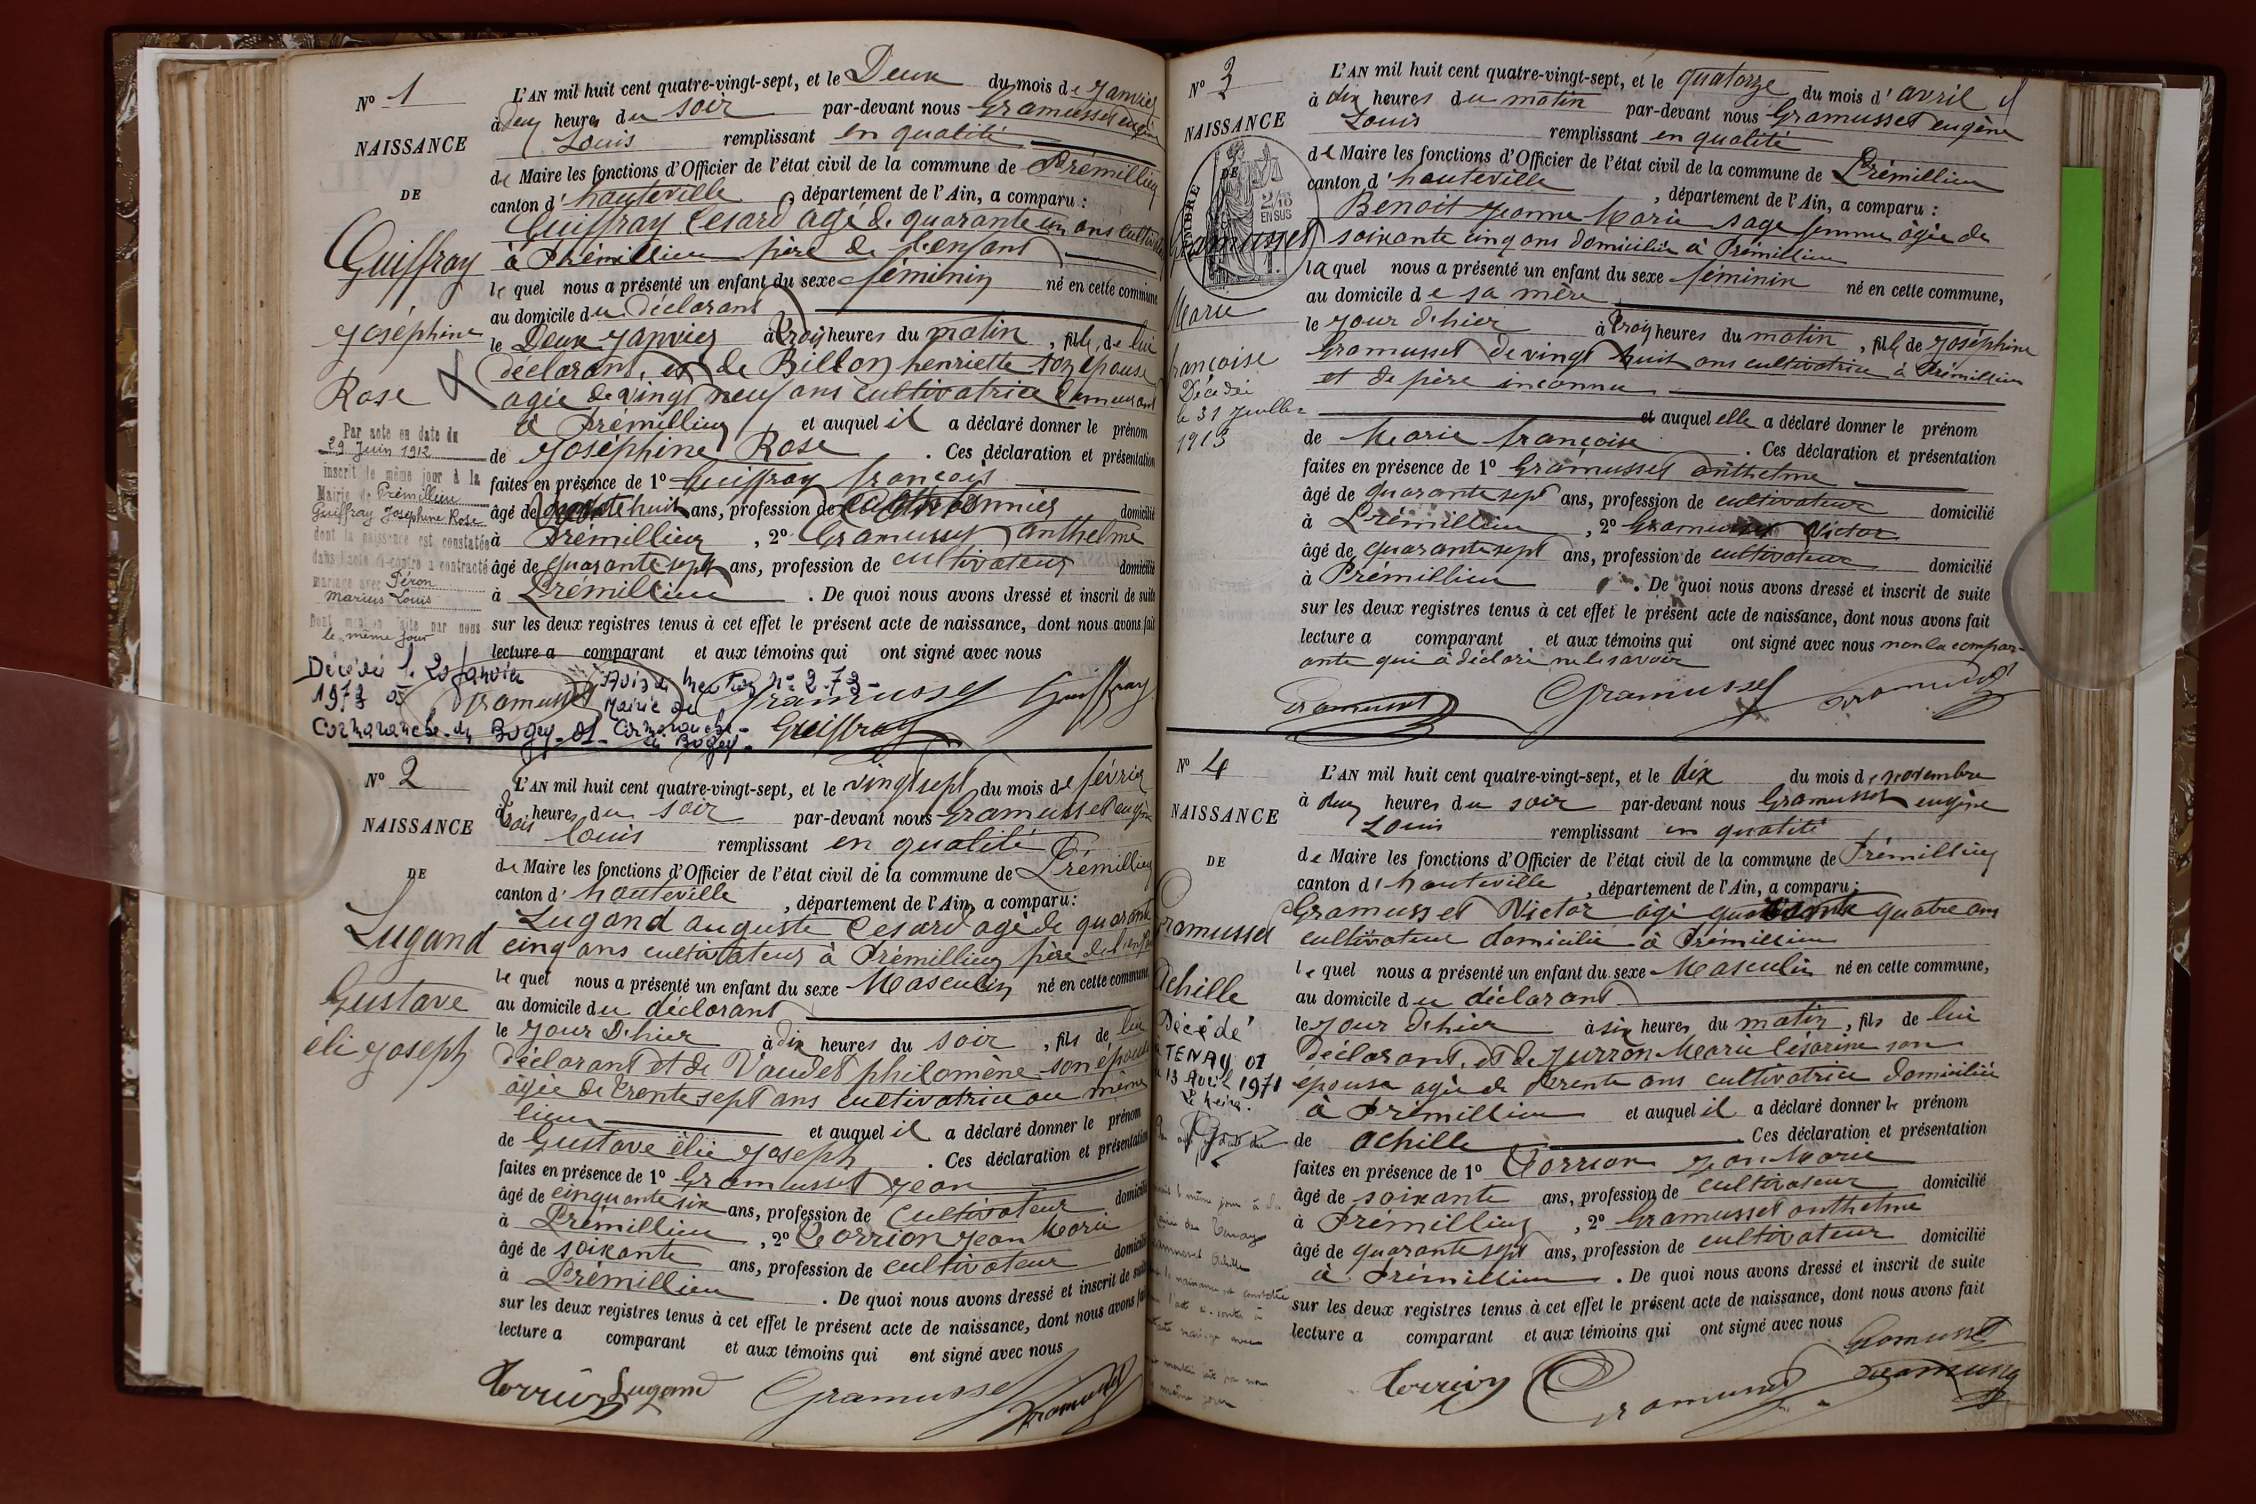 N° 1
NAISSANCE
DE
Guiffray
Joséphine
Rose
Par acte en date du
29 Juin 1912
inscrit le même jour à la
Mairie de Prémillieu
Guiffray Joséphine Rose
dont la naissance est constatée
dans l'acte ci-contre a contracté
mariage avec Féron
Marius Louis
Dont mention faite par nous
le même jour
L'AN mil huit cent quatre-vingt-sept, et le Deux du mois de Janvier
à deux heures du soir par-devant nous Gramusset eugène
Louis remplissant en qualité
de Maire les fonctions d'Officier de l'état civil de la commune de Prémillieu
canton d'hauteville, département de l'Ain, a comparu :
Guiffray Cesard agé de quarante un ans cultivateur
à Prémillieu père de l'enfant
le quel nous a présenté un enfant du sexe féminin né en cette commune
au domicile du déclarant
le Deux Janvier à trois heures du matin, fille de lui
déclarant, et de Billon henriette son épouse
agée de vingt neuf ans cultivatrice demeurant
à Prémillieu et auquel il a déclaré donner le prénom
de Joséphine Rose. Ces déclaration et présentation
faites en présence de 1° Guiffray françois
âgé de huit ans, profession de domicilié
à Prémillieu, 2° Gramusset anthelme
âgé de quarante sept ans, profession de cultivateur domicilié
à Prémillieu. De quoi nous avons dressé et inscrit de suite
sur les deux registres tenus à cet effet le présent acte de naissance, dont nous avons fait
lecture a comparant et aux témoins qui ont signé avec nous
Décédée le 20 Janvier
Avis de Mention n° 2.73
Mairie de
Cormaranche en Bugey - 01 - Cormaranche
en Bugey
Gramusset Gramusset Guiffray
Guiffray
N° 2
NAISSANCE
DE
Lugand
Gustave
éli Joseph
L'AN mil huit cent quatre-vingt-sept, et le vingt sept du mois de février
à trois heures du soir par-devant nous Gramusset eugène
Louis remplissant en qualité
de Maire les fonctions d'Officier de l'état civil de la commune de Prémillieu
canton d'hauteville, département de l'Ain, a comparu :
Lugand auguste Cesard agé de quarante
cinq ans cultivateur à Prémillieu père de l'enfant
le quel nous a présenté un enfant du sexe Masculin né en cette commune
au domicile du déclarant
le jour d'hier à dix heures du soir, fils de lui
déclarant et de Vaudet philomène son épouse
âgée de trente sept ans cultivatrice au même
lieu et auquel il a déclaré donner le prénom
de Gustave élie Joseph. Ces déclaration et présentation
faites en présence de 1° Gramusset Jean
âgé de cinquante six ans, profession de cultivateur domicilié
à Prémillieu, 2° Corrion Jean Marie
âgé de soixante ans, profession de cultivateur domicilié
à Prémillieu. De quoi nous avons dressé et inscrit de suite
sur les deux registres tenus à cet effet le présent acte de naissance, dont nous avons fait
lecture a comparant et aux témoins qui ont signé avec nous
Corrion Lugand Gramusset Gramusset
N° 3
NAISSANCE
DE
Gramusset
Marie
françoise
Décédée
le 31 Juillet
1913
2/10
EN SUS
L'AN mil huit cent quatre-vingt-sept, et le quatorze du mois d'avril
à dix heures du matin par-devant nous Gramusset eugène
Louis remplissant en qualité
de Maire les fonctions d'Officier de l'état civil de la commune de Prémillieu
canton d'hauteville, département de l'Ain, a comparu :
Benoit Jeanne Marie sage femme âgée de
soixante cinq ans domiciliée à Prémillieu
laquel nous a présenté un enfant du sexe féminin né en cette commune,
au domicile de sa mère
le jour d'hier à trois heures du matin, fille de Joséphine
Gramusset de vingt huit ans cultivatrice à Prémillieu
et de père inconnu
et auquel elle a déclaré donner le prénom
de Marie françoise. Ces déclaration et présentation
faites en présence de 1° Gramusset anthelme
âgé de quarante sept ans, profession de cultivateur domicilié
à Prémillieu, 2° Gramusset Victor
âgé de quarante sept ans, profession de cultivateur domicilié
à Prémillieu. De quoi nous avons dressé et inscrit de suite
sur les deux registres tenus à cet effet le présent acte de naissance, dont nous avons fait
lecture a comparant et aux témoins qui ont signé avec nous non la compar-
ante qui à déclaré ne le savoir
Gramusset Gramusset Gramusset
N° 4
NAISSANCE
DE
Gramusset
Achille
Décédé
TENAY 01
13 Avril 1971
L'AN mil huit cent quatre-vingt-sept, et le dix du mois de novembre
à deux heures du soir par-devant nous Gramusset eugène
Louis remplissant en qualité
de Maire les fonctions d'Officier de l'état civil de la commune de Prémillieu
canton d'hauteville, département de l'Ain, a comparu :
Gramusset Victor âgé quarante quatre ans
cultivateur domicilié à Prémillieu
le quel nous a présenté un enfant du sexe Masculin né en cette commune,
au domicile du déclarant
le jour d'hier à six heures du matin, fils de lui
déclarant, et de Jurron Marie Césarine son
épouse agée de trente ans cultivatrice domiciliée
à Prémillieu et auquel il a déclaré donner le prénom
de achille. Ces déclaration et présentation
faites en présence de 1° Corrion Jean Marie
âgé de soixante ans, profession de cultivateur domicilié
à Prémillieu, 2° Gramusset anthelme
âgé de quarante sept ans, profession de cultivateur domicilié
à Prémillieu. De quoi nous avons dressé et inscrit de suite
sur les deux registres tenus à cet effet le présent acte de naissance, dont nous avons fait
lecture a comparant et aux témoins qui ont signé avec nous
Corrion Gramusset Gramusset
Gramusset